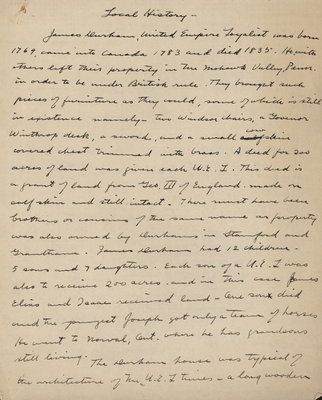 Local History -
James Durham, United Empire Loyalist was born
1769, came into Canada 1783 and died 1835. He with
others left their property in the Mohawk Valley, Penn.
in order to be under British rule. They brought such
pieces of furniture as they could, some of which is still
in existence namely - two Windsor chairs, a Governor
Winthrop desk, a sword, and a small cow skin
covered chest trimmed with brass. A deed for 200
acres of land was given each U.E.L. This deed is
a grant of land from Geo. III of England. made on
calf skin and still intact. There must have been
brothers or cousins of the same name as property
was also owned by Durhams in Stamford and
Grantham. James Durham had 12 children -
5 sons and 7 daughters. Each son of a U.E.L was
also to receive 200 acres. and in this case James
Elias and Isaac received land - One son died
and the youngest Joseph got only a team of horses
He went to Norval, Ont. where he has grandsons
still living. The Durham house was typical of
the architecture of the U.E.L times - a long wooden